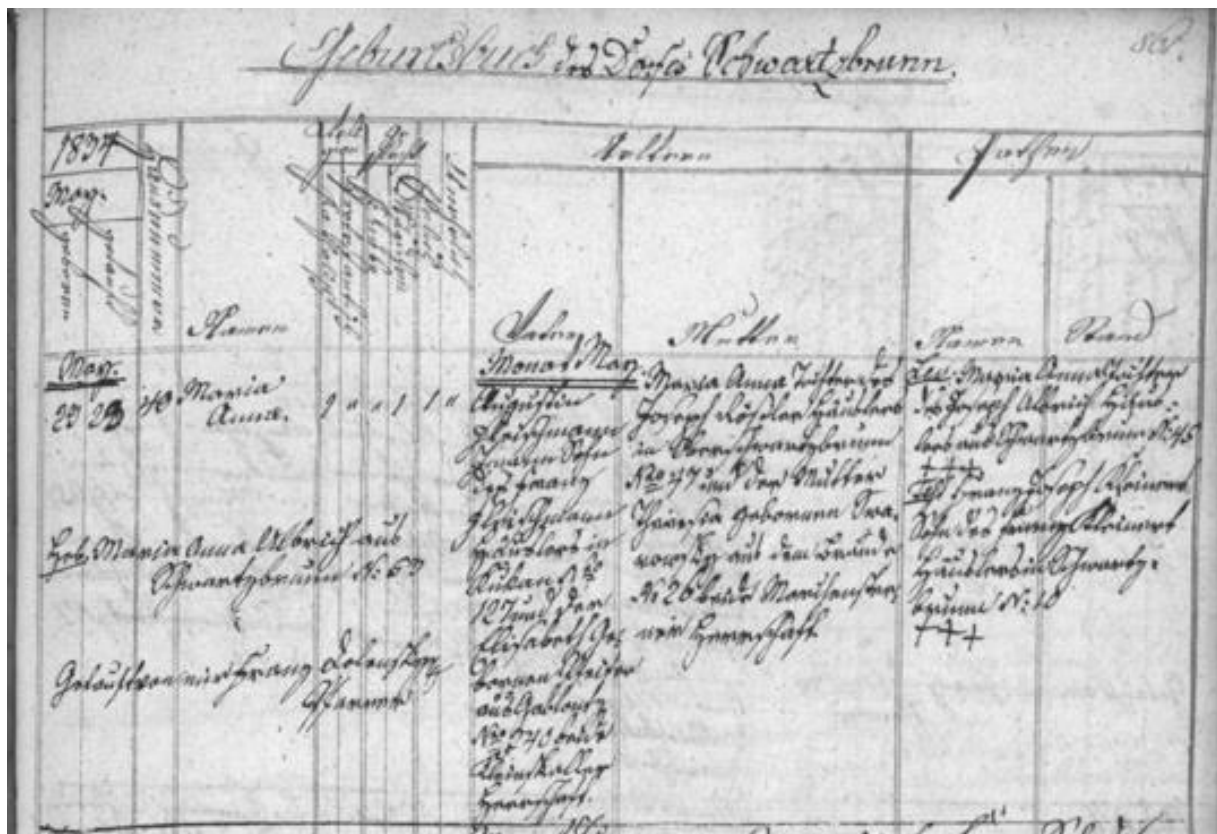 Geburtsbuch des Dorfes Schwartzbrunn.
1834
May.
geboren
getauft
Hausnummer
Namen
Religion
Katholisch
Protestantisch
Geschlecht
Knabe
Mädchen
Ehelich
Unehelich
Aeltern
Pathen
Vater
Mutter
Namen
Stand
May.
23 23 40 Maria
Anna.
1 " " 1 1 "
Monat May.
Augustin
Fleischmann
Sohn
des Franz
Fleischmann
Häuslers in
Kukan No
127 und der
Elisabeth Ge=
bornen Pfeifer
aus Gablontz
No 40 beide
Kleinskaller
Herrschaft.
Maria Anna Tochter des
Joseph Rößler Häuslers
in Oberschwartzbrunn
No 47 und der Mutter
Theresia gebornen
aus dem
No 26 beide
Herrschaft
Maria Anna Tochter
des Joseph Ulbrich Häus=
lers aus Schwartzbrunn No 45
+++
Franz Joseph Kleinert
Sohn des Franz Kleinert
Häuslers in Schwartz=
brunn No 10
+++
Heb. Maria Anna Ulbrich aus
Schwartzbrunn No 63
Getauft von mir Franz
Pfarrer